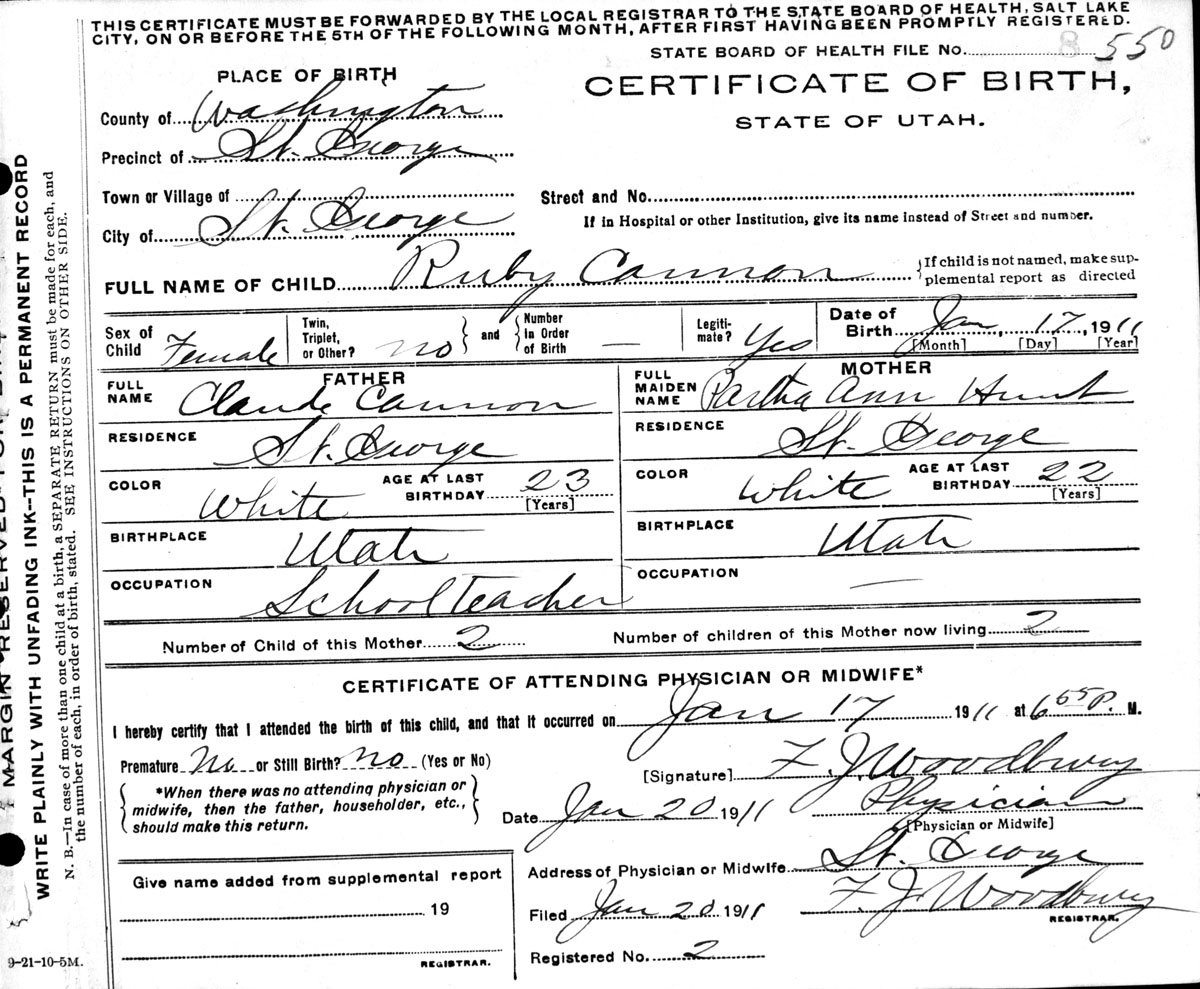 THIS CERTIFICATE MUST BE FORWARDED BY THE LOCAL REGISTRAR TO THE STATE BOARD OF HEALTH, SALT LAKE
CITY, ON OR BEFORE THE 5TH OF THE FOLLOWING MONTH, AFTER FIRST HAVING BEEN PROMPTLY REGISTERED.
STATE BOARD OF HEALTH FILE No. 8 550
PLACE OF BIRTH
CERTIFICATE OF BIRTH,
STATE OF UTAH.
County of Washington
Precinct of St. George
Town or Village of
Street and No.
City of St. George
If in Hospital or other Institution, give its name instead of Street and number.
FULL NAME OF CHILD Ruby Cannon
If child is not named, make supplemental report as directed
Sex of Child Female
Twin, Triplet, or Other? no and Number in Order of Birth —
Legitimate? Yes
Date of Birth Jan, 17, 1911
[Month] [Day] [Year]
FATHER
FULL NAME Claude Cannon
MOTHER
FULL MAIDEN NAME Partha Ann Hunt
RESIDENCE St. George
RESIDENCE St. George
COLOR White AGE AT LAST BIRTHDAY 23 [Years]
COLOR White AGE AT LAST BIRTHDAY 22 [Years]
BIRTHPLACE Utah
BIRTHPLACE Utah
OCCUPATION School teacher
OCCUPATION —
Number of Child of this Mother 2 Number of children of this Mother now living 2
CERTIFICATE OF ATTENDING PHYSICIAN OR MIDWIFE*
I hereby certify that I attended the birth of this child, and that it occurred on Jan 17 1911 at 6 55 P. M.
Premature No or Still Birth? no (Yes or No)
*When there was no attending physician or
midwife, then the father, householder, etc.,
should make this return.
[Signature] F. J. Woodbury
Date Jan 20 1911 Physician
[Physician or Midwife]
Address of Physician or Midwife St. George
Give name added from supplemental report
19
REGISTRAR.
Filed Jan 20 1911 F. J. Woodbury
REGISTRAR.
Registered No. 2
9-21-10-5M.
WRITE PLAINLY WITH UNFADING INK--THIS IS A PERMANENT RECORD
N. B.—In case of more than one child at a birth, a SEPARATE RETURN must be made for each, and
the number of each, in order of birth, stated. SEE INSTRUCTIONS ON OTHER SIDE.